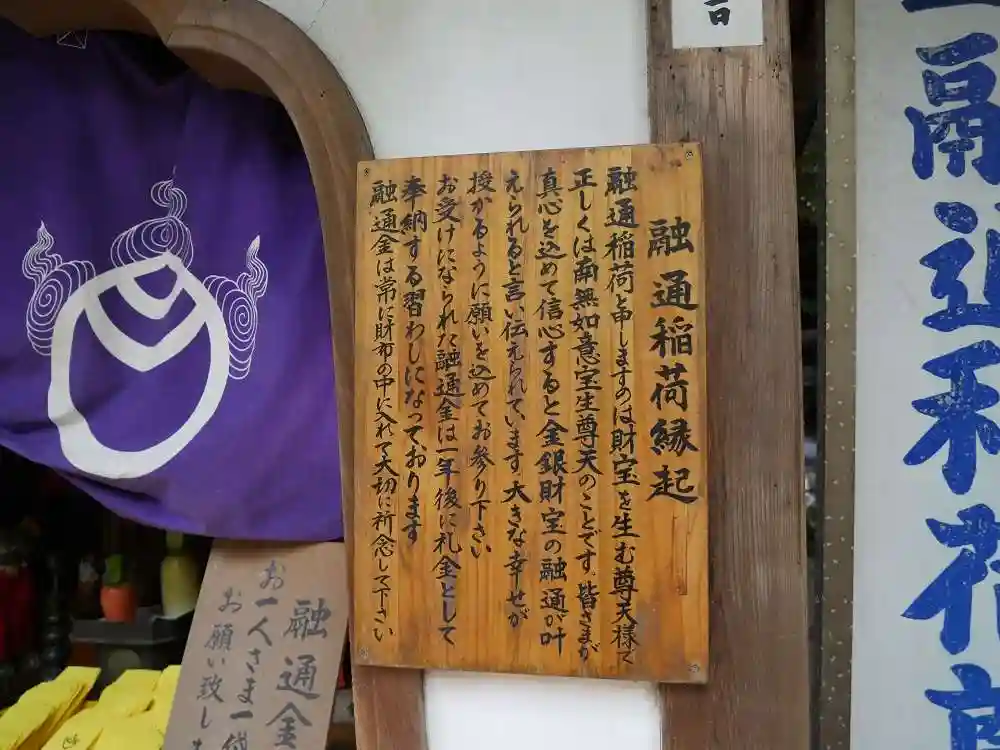 融通稲荷縁起
融通稲荷と申しますのは財宝を生む尊天様で
正しくは南無如意宝生尊天のことです。皆さまが
真心を込めて信心すると金銀財宝の融通が叶
えられると言い伝えられています。大きな幸せが
授かるように願いを込めてお参り下さい
お受けになられた融通金は一年後に礼金として
奉納する習わしになっております
融通金は常に財布の中に入れて大切に祈念して下さい
融通金
お一人さま一
お願い致し
融通稲荷